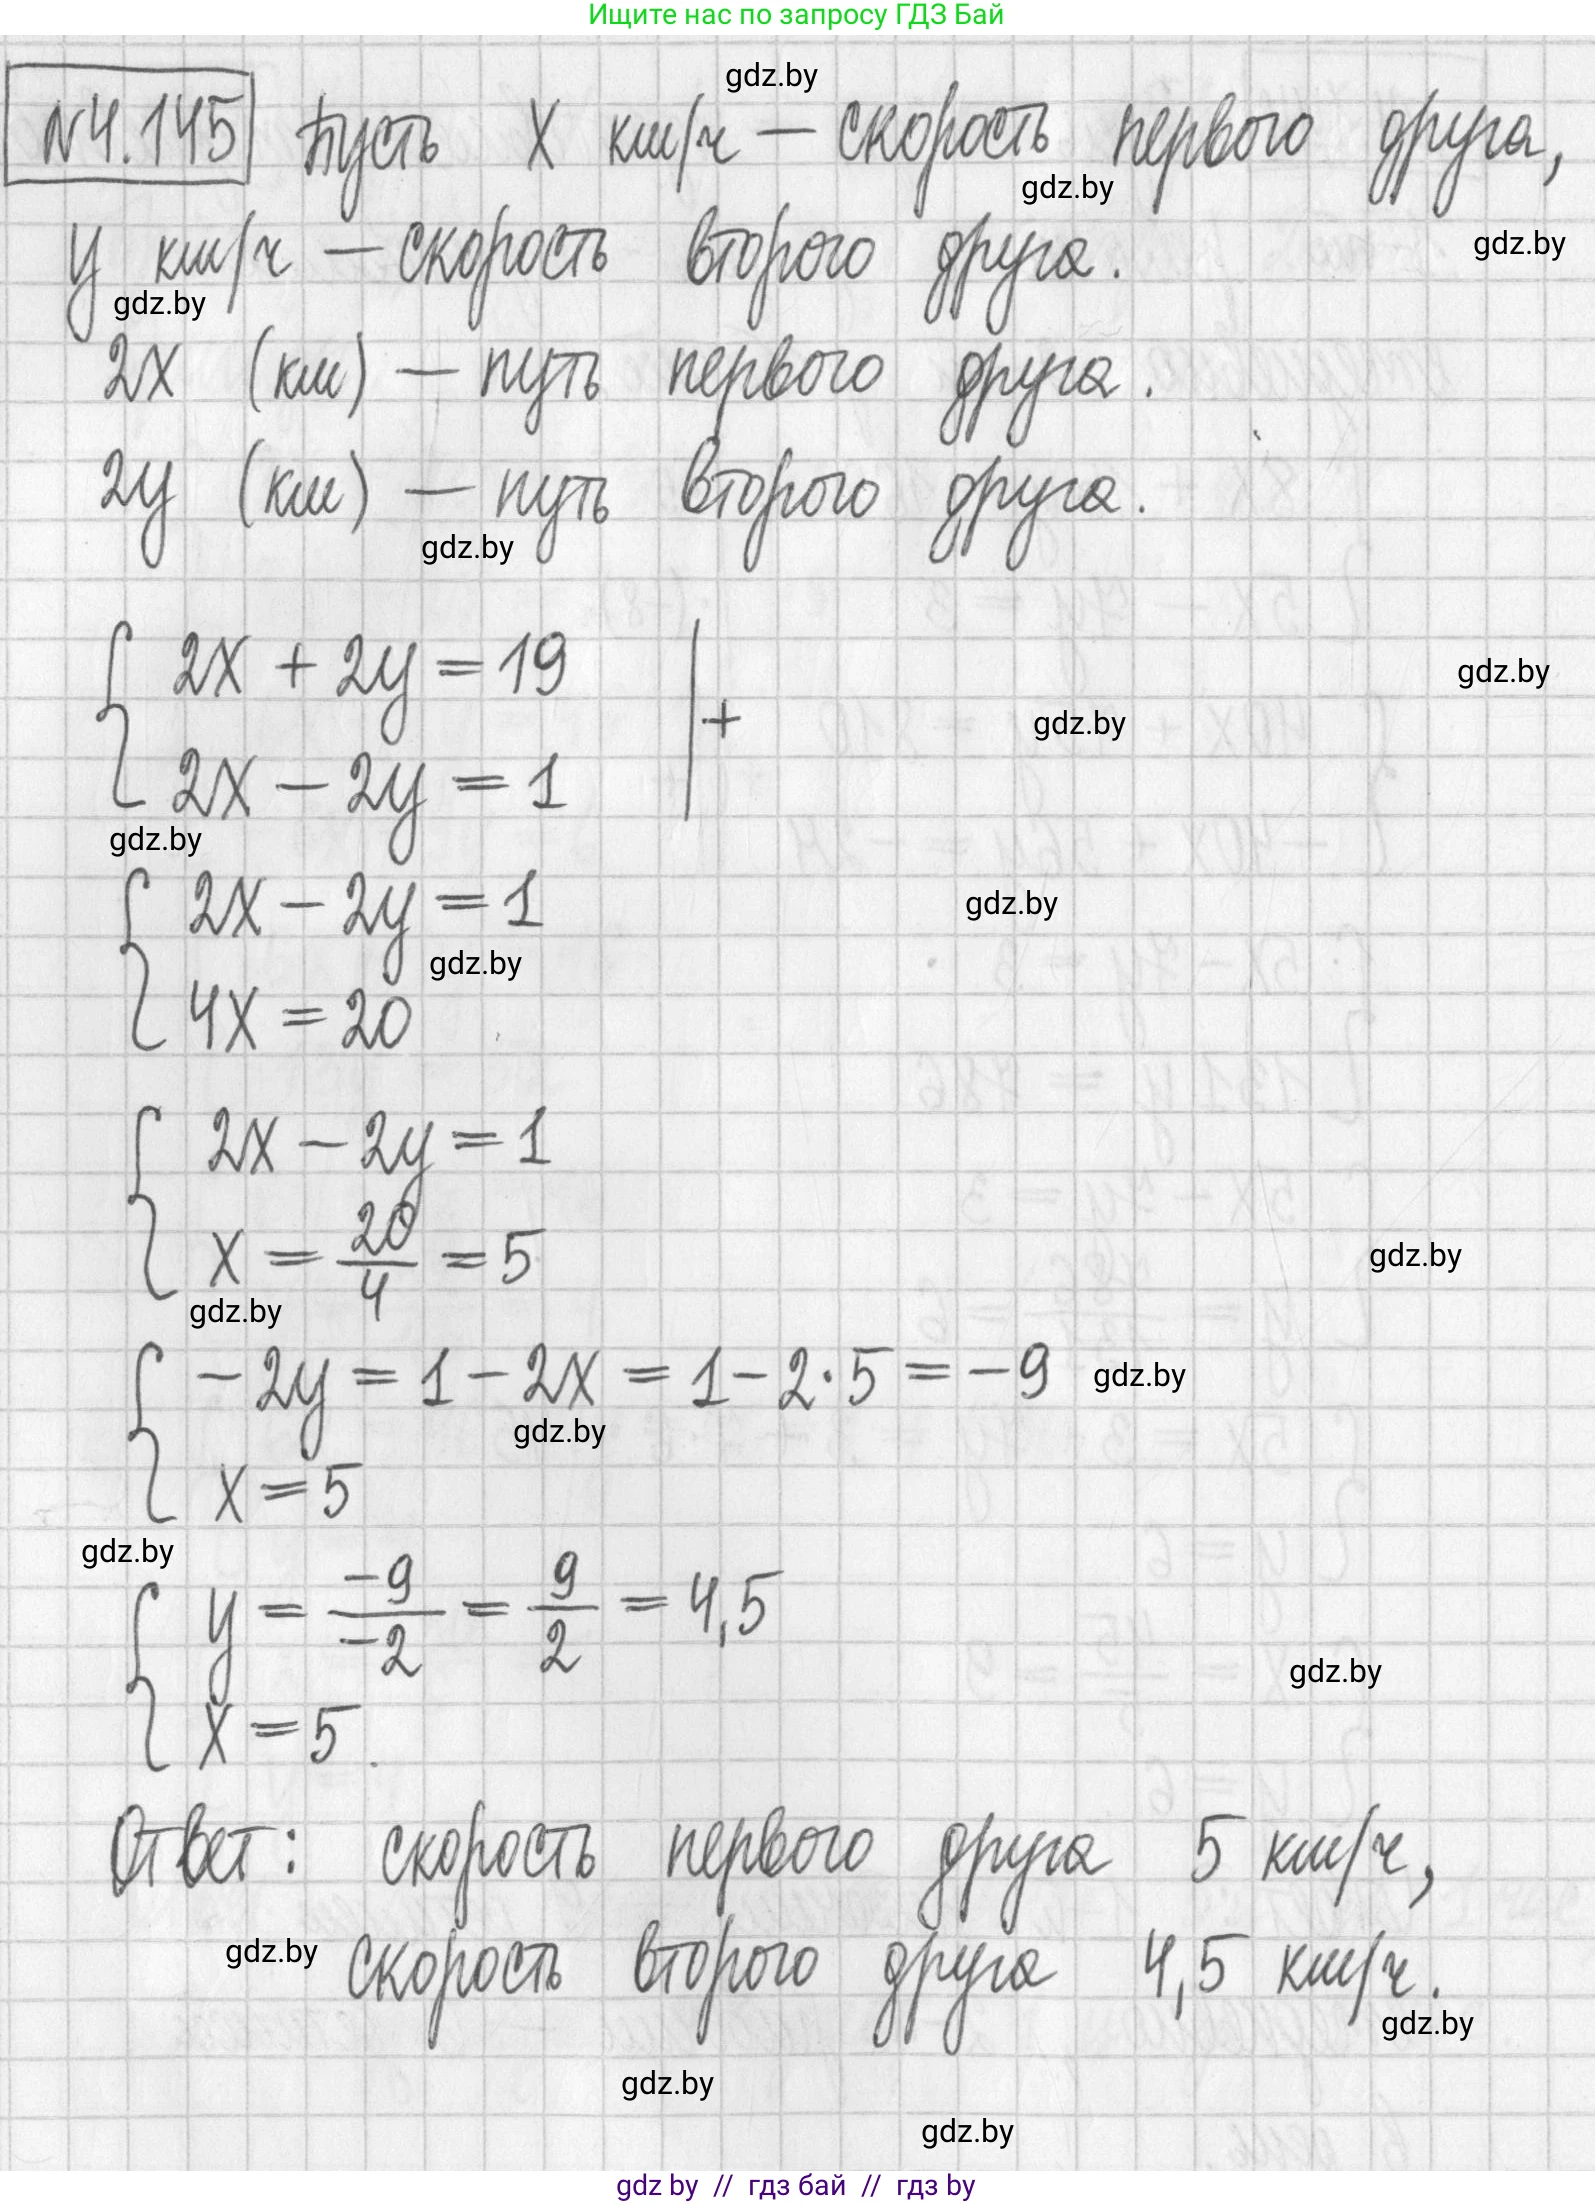 Ищите нас по запросу ГДЗ Бай
gdz.by
№4.145 Пусть x км/ч — скорость первого друга,
gdz.by
y км/ч — скорость второго друга.
gdz.by
gdz.by
2x (км) — путь первого друга.
2y (км) — путь второго друга.
gdz.by
2x + 2y = 19
gdz.by
+
gdz.by
2x − 2y = 1
gdz.by
2x − 2y = 1
gdz.by
gdz.by
4x = 20
2x − 2y = 1
x = 20/4 = 5
gdz.by
gdz.by
−2y = 1 − 2x = 1 − 2·5 = −9
gdz.by
gdz.by
x = 5
gdz.by
y = −9/−2 = 9/2 = 4,5
gdz.by
x = 5.
Ответ: скорость первого друга 5 км/ч,
gdz.by
скорость второго друга 4,5 км/ч.
gdz.by
gdz.by
gdz.by
gdz by // гдз бай // гдз by